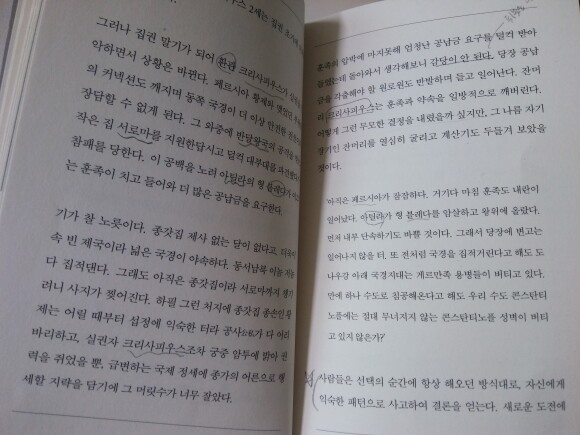 우스 2세는 집권 초기에
그러나 집권 말기가 되어 환관 크리사피우스가
악하면서 상황은 바뀐다. 페르시아 황제와 맺었던
의 커넥션도 깨지며 동쪽 국경이 더 이상 안전한
장담할 수 없게 된다. 그 와중에 반달왕국의 공격을
작은 집 서로마를 지원한답시고 덜컥 대부대를 파견했다
참패를 당한다. 이 공백을 노려 아틸라의 형 블레다가
는 훈족이 치고 들어와 더 많은 공납금을 요구한다.
기가 찰 노릇이다. 종갓집 제사 없는 달이 없다고, 더욱이
속 빈 제국이라 넓은 국경이 야속하다. 동서남북 이놈 저놈
다 집적댄다. 그래도 아직은 종갓집이라 서로마까지 챙기
러니 사지가 찢어진다. 하필 그런 처지에 종갓집 종손인 황
제는 어릴 때부터 섭정에 익숙한 터라 공사公私가 다 어리
마리하고, 실권자 크리사피우스조차 궁중 암투에 밝아 권
력을 쥐었을 뿐, 급변하는 국제 정세에 종가의 어른으로 행
세할 지략을 담기에 그 머릿수가 너무 잘았다.
훈족의 압박에 마지못해 엄청난 공납금 요구를 덜컥 받아
들였는데 돌아와서 생각해보니 감당이 안 된다. 당장 공납
금을 각출해야 할 원로원도 반발하며 들고 일어난다. 잔머
리 크리사피우스는 훈족과 약속을 일방적으로 깨버린다.
어떻게 그런 무모한 결정을 내렸을까 싶지만, 그 나름 자기
장기인 잔머리를 열심히 굴리고 계산기도 두들겨 보았을
것이다.
'아직은 페르시아가 잠잠하다. 거기다 마침 훈족도 내란이
일어났다. 아틸라가 형 블레다를 암살하고 왕위에 올랐다.
먼저 내부 단속하기도 바쁠 것이다. 그래서 당장에 변고는
일어나지 않을 터, 또 전처럼 국경을 집적거린다고 해도 도
나우강 아래 국경지대는 게르만족 용병들이 버티고 있다.
만에 하나 수도로 침공해온다고 해도 우리 수도 콘스탄티
노플에는 절대 무너지지 않는 콘스탄티노플 성벽이 버티
고 있지 않은가?
사람들은 선택의 순간에 항상 해오던 방식대로, 자신에게
익숙한 패턴으로 사고하여 결론을 얻는다. 새로운 도전에